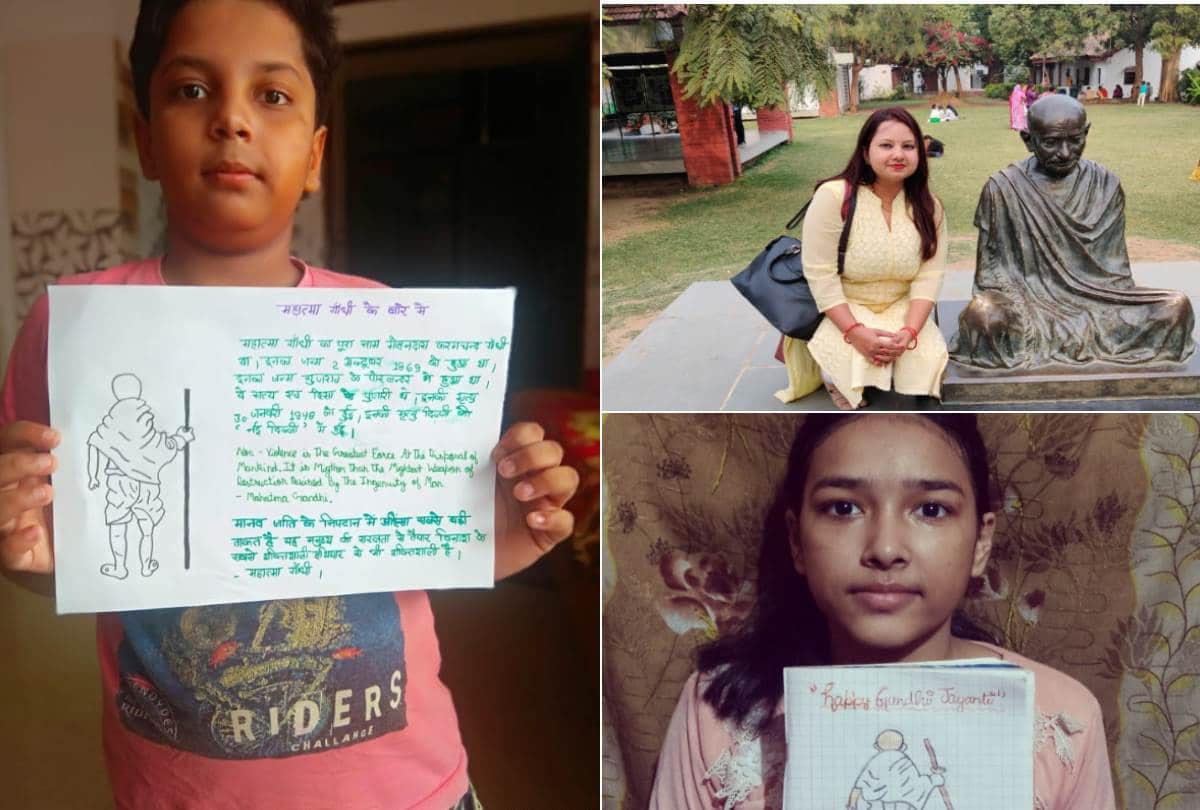 महात्मा गाँधी के बारे मे
महात्मा गाँधी का पूरा नाम मोहनदास करमचन्द गाँधी
था, इनका जन्म 2 अक्टूबर 1869 को हुआ था,
इनका जन्म गुजरात के पोरबन्दर मे हुआ था,
वे सत्य एवं हिंसा के पुजारी थे, इनकी मृत्यु
30 जनवरी 1948 को हुई, इनकी मृत्यु दिल्ली की
नई दिल्ली में हुई।
Non - Violence is The Greatest Force At The Disposal of
Mankind, It is Migthier Than the Mightest Weapon of
Destruction Devised By The Ingenuity of Man
- Mahatma Gandhi.
मानव जाति के निपटान में अहिंसा सबसे बड़ी
ताकत है यह मनुष्य की सरलता से तैयार विनाश के
सबसे शक्तिशाली हथियार से भी शक्तिशाली है।
- महात्मा गाँधी।
RIDERS
CHALLANGE
"Happy Gandhi Jayanti"